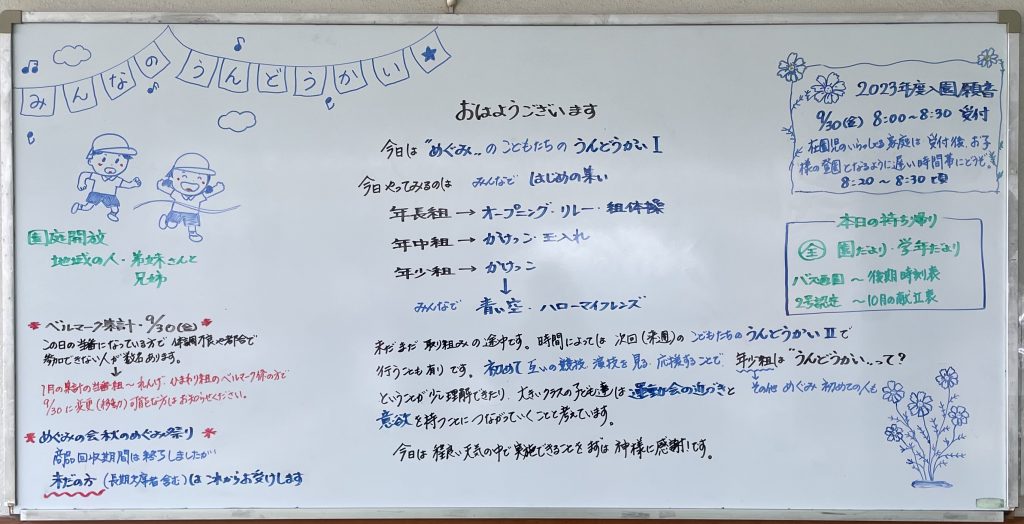 みんなの うんどうかい★
おはようございます
今日は "めぐみ" のこどもたちの うんどうかい Ⅰ
今日やってみるのは みんなで はじめの集い
年長組 → オープニング・リレー・組体操
年中組 → かけっこ・玉入れ
年少組 → かけっこ
↓
みんなで 青い空・ハローマイフレンズ
まだまだ 取り組みの途中です。時間によっては 次回(来週)の こどもたちの うんどうかい Ⅱ で
行うことも有りです。初めて 互いの競技 演技を見る・応援することで 年少組は "うんどうかい…って?
ということが少し理解できたり、大きいクラスの子ども達は 運動会の近づきと その他 めぐみ 初めての人も
意欲を持つことに つながっていくことと考えています。
今日は 程良い天気の中で 実施できることを まずは 神様に感謝!です。
園庭開放
地域の人・弟妹さんと
兄姉
* ベルマーク集計・9/30(金) *
この日の当番になっている方で 体調不良や都合で
参加できない人が数名あります。
↓
1月の集計の当番組〜れんげ ひまわり組のベルマーク係の方で
9/30に変更(移動)可能な方は お知らせください。
* めぐみの会秋のめぐみ祭り *
商品回収期間は終了しましたが
まだの方(長期欠席者含む)は これからお受けします
2023年度入園願書
9/30(金) 8:00〜8:30 受付
在園児のいらっしゃる家庭は 受付後、お子
様の登園となるように遅い時間帯にどうぞ。
8:20〜8:30頃
本日の持ち帰り
全 園だより・学年だより
バス 〜 後期時刻表
2号認定 〜10月の献立表